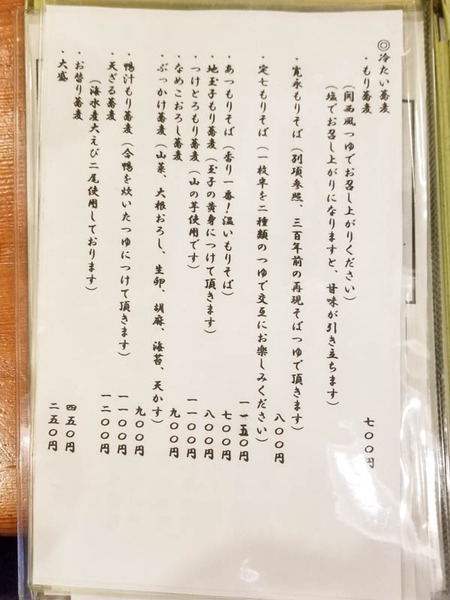 ◎冷たい蕎麦
・もり蕎麦 七〇〇円
(関西風つゆでお召し上がりください)
(塩でお召し上がりになりますと、甘味が引き立ちます)
・寛永もりそば(別項参照、三百年前の再現そばつゆで頂きます) 八〇〇円
・定七もりそば(一枚半を二種類のつゆで交互にお楽しみください) 一一五〇円
・あつもりそば(香り一番!温いもりそば) 七〇〇円
・地玉子もり蕎麦(玉子の黄身につけて頂ます) 八〇〇円
・つけとろもり蕎麦(山の芋使用です) 一一〇〇円
・なめこおろし蕎麦 九〇〇円
・ぶっかけ蕎麦(山菜、大根おろし、生卵、胡麻、海苔、天かす) 九〇〇円
・鴨汁もり蕎麦(合鴨を炊いたつゆにつけて頂きます) 一一〇〇円
・天ざる蕎麦 一二〇〇円
(海水産大えび二尾使用しております)
・お替り蕎麦 四五〇円
・大盛 二五〇円